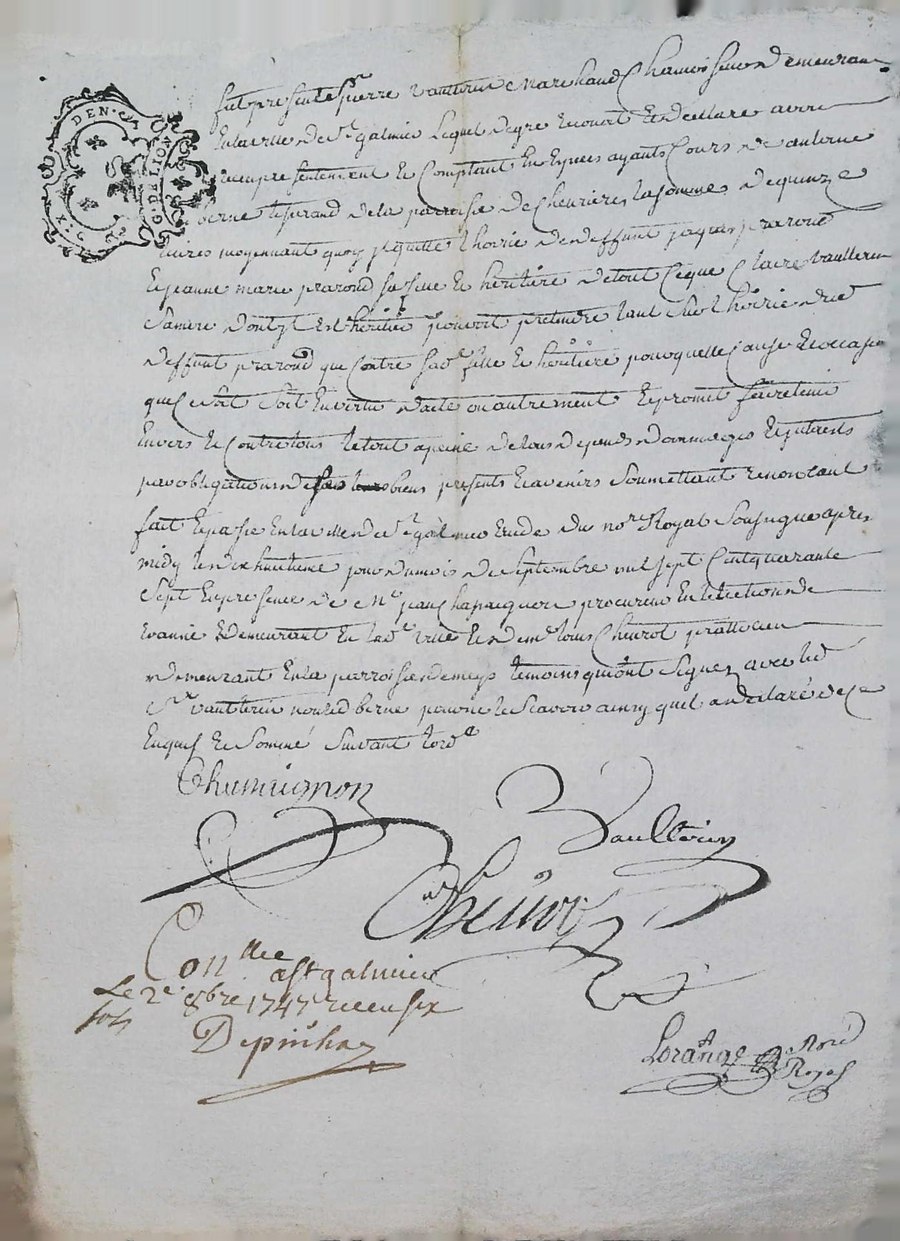 DEN.
G. DELION
fut present Sr pierre Vaulterin Marchand Chamoiseur demeurant
En la ville de St galmier Lequel de gré reconoit Et declare avoir
receu presentement Et Comptant En Especes ayants Cours de antoine
berne tisserand de la parroisse de Chevrieres la somme de quinze
livres moyennant quoy jl quitte lhoirie de deffunt jaques prarond
Et jeanne marie prarond sa fille Et heritiere de tout Ce que Claire Vaulterin
Sa mere dont jl Est heritier pouvoit pretendre tant sur lhoirie dud
deffunt prarond que Contre sad fille Et heritiere pour quelle Cause Et occasion
que Ce soit soit En vertu dacte ou autrement Et promet faire tenir
Envers Et Contre tous le tout a peine de tous depends dommages Et jnterets
par obligations de ses biens presents Et avenirs Soumettant renoncant
fait Et passé En la ville de St galmier Etude du nore Royal Soussigné apres
midy le dix huitieme jour du mois de Septembre mil sept Cent quarante
Sept En presence de Me jean procureur En lelection de
Et demeurant En lad ville Et de sr louis Chevrot pratticien
demeurant En la parroisse de meys temoins qui ont signez avec led
Sr Vaulterin non led berne pour ne le scavoir ainsy quil a declaré de Ce
Enquis Et sommé suivant lord
Vaulterin
Chevrot
Conllee a St galmier
Le 2e 8bre 1747 receu six
sols
Lorange Nore
Royal